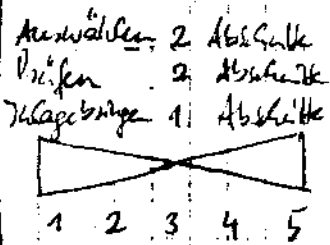 Auswählen 2 Abschnitte
Prüfen 2 Abschnitte
1 Abschnitte
1 2 3 4 5